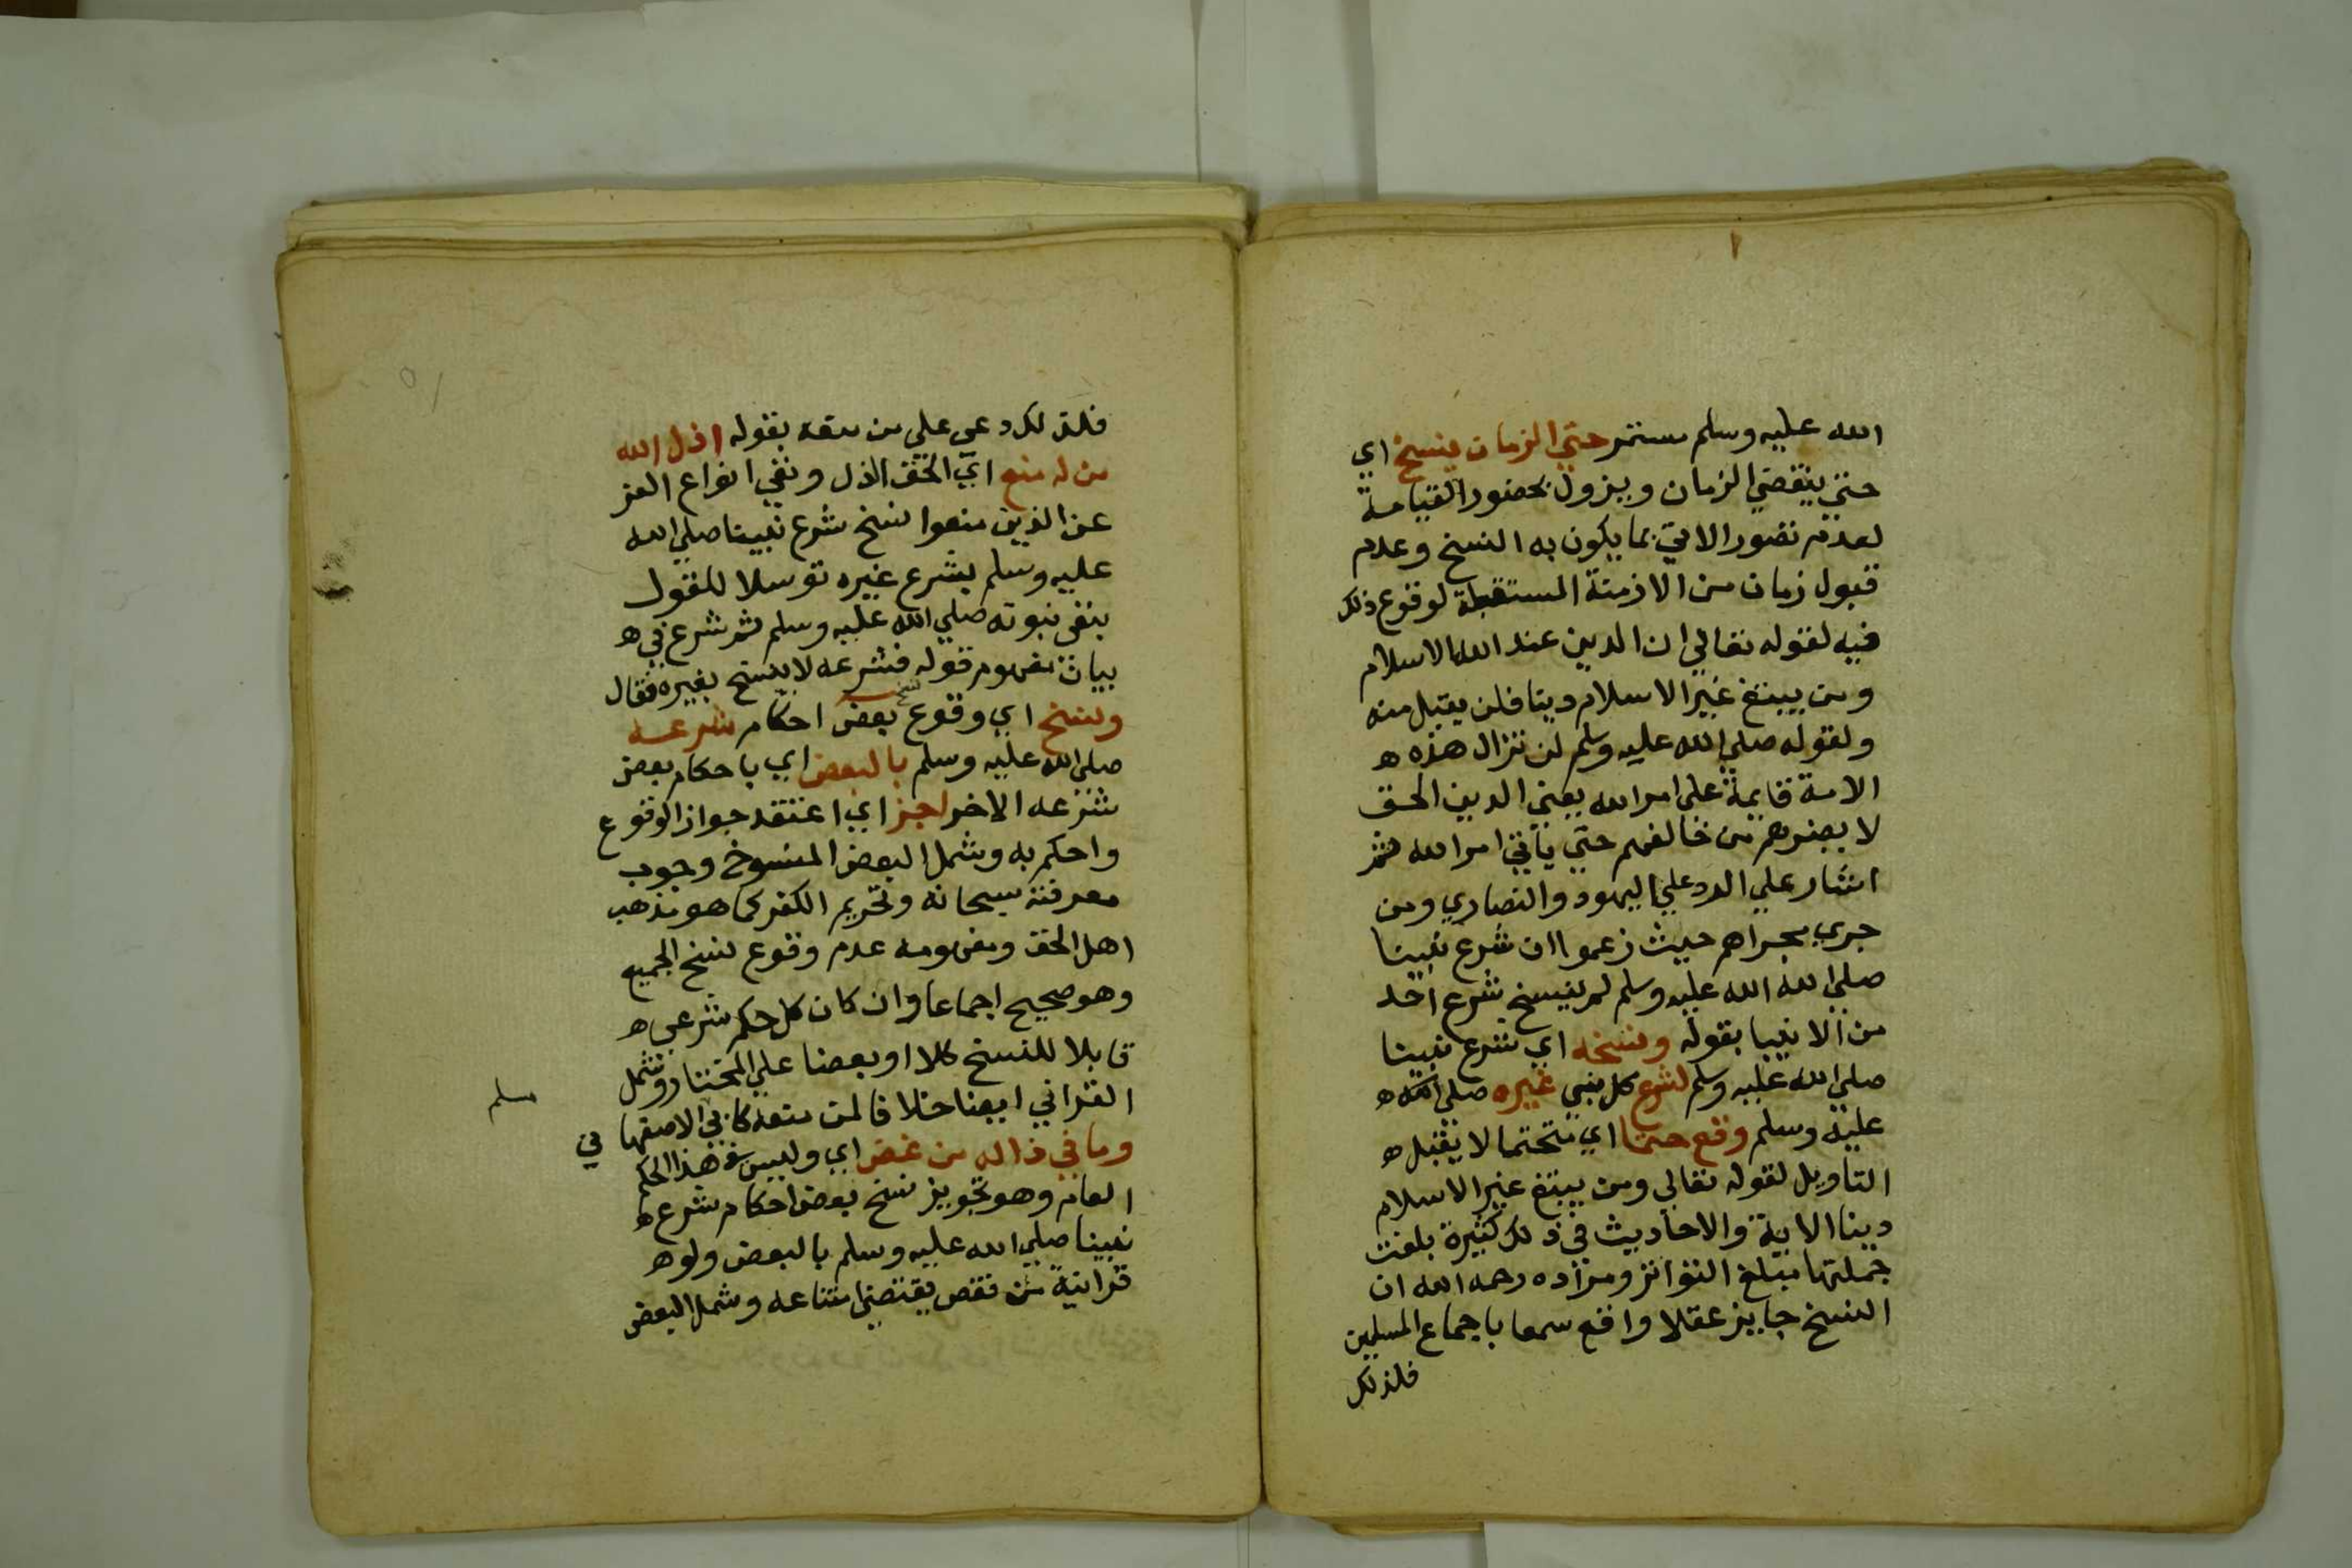 الله عليه وسلم مستمر حتي الزمان ينسخ اي
حتي ينقضي الزمان ويزول بحضور القيامة
لعدم تصور الاتي بما يكون به النسخ وعدم
قبول زمان من الازمنة المستقبلة لوقوع ذلك
فيه لقوله تعالي ان الدين عند الله الاسلام
ومن يبتغ غير الاسلام دينا فلن يقبل منه
ولقوله صلي الله عليه وسلم لن تزال هذه ه
الامة قايمة علي امر الله يعني الدين الحق
لا يضرهم من خالفهم حتي ياتي امر الله ثم
اشار علي الرد علي اليهود والنصاري ومن
جري مجراهم حيث زعموا ان شرع نبينا
صلي الله الله عليه وسلم لم ينسخ شرع احد
من الانبيا بقوله ونسخه اي شرع نبينا
صلي الله عليه وسلم لشرع كل نبي غيره صلي الله ه
عليه وسلم وقع حتما اي متحتما لا يقبل ه
التاويل لقوله تعالي ومن يبتغ غير الاسلام
دينا الاية والاحاديث في ذلك كثيرة بلغت
جملتها مبلغ التواتر ومراده رحمه الله ان
النسخ جايز عقلا واقع سمعا باجماع المسلمين
فلذلك
فلذلك دعي علي من منعه بقوله اذل الله
من له منع اي الحق الذل ونفي انواع العز
عن الذين منعوا نسخ شرع نبينا صلي الله
عليه وسلم بشرع غيره توسلا للقول
بنفي نبوته صلي الله عليه وسلم ثم شرع في ه
بيان مفهوم قوله فشرعه لا ينسخ بغيره فقال
ونسخ اي وقوع نسخ بعض احكام شرعه
صلي الله عليه وسلم بالبعض اي باحكام بعض
شرعه الاخر اجز اي اعتقد جواز الوقوع
واحكم به وشمل البعض المنسوخ وجوب
معرفته سبحانه وتحريم الكفر كما هو مذهب
اهل الحق ومفهومه عدم وقوع نسخ الجميع
وهو صحيح اجماعا وان كان كل حكم شرعي ه
قابلا للنسخ كلا او بعضا علي المختار وشمل
القراني ايضا خلافا لمن منعه كابي الاصفها
مسلم
في
وما في ذا له من غض اي وليس في هذا الحكم
العام وهو تجويز نسخ بعض احكام شرع ه
نبينا صلي الله عليه وسلم بالبعض ولو ه
قرانية من نقص يقتضي امتناعه وشمل البعض